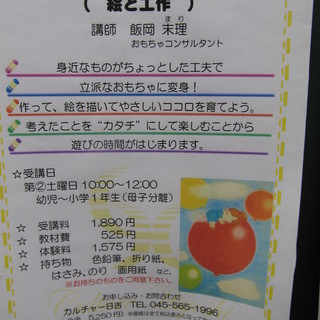 ( 絵と工作 )
講師 飯岡 末理
まり
おもちゃコンサルタント
身近なものがちょっとした工夫で
立派なおもちゃに変身！
作って、絵を描いてやさしいココロを育てよう。
考えたことを“カタチ”にして楽しむことから
遊びの時間がはじまります。
☆受講日
第②土曜日 10:00～12:00
幼児～小学1年生(母子分離)
☆ 受講料 1,890円
☆ 教材費 525円
☆ 体験料 1,575円
☆ 持ち物 色鉛筆、折り紙、
はさみ、のり 画用紙 など。
※お持ちのものをご用意ください。
お申し込み・お問合わせ
カルチャー日吉 TEL 045-565-1996
5,250円